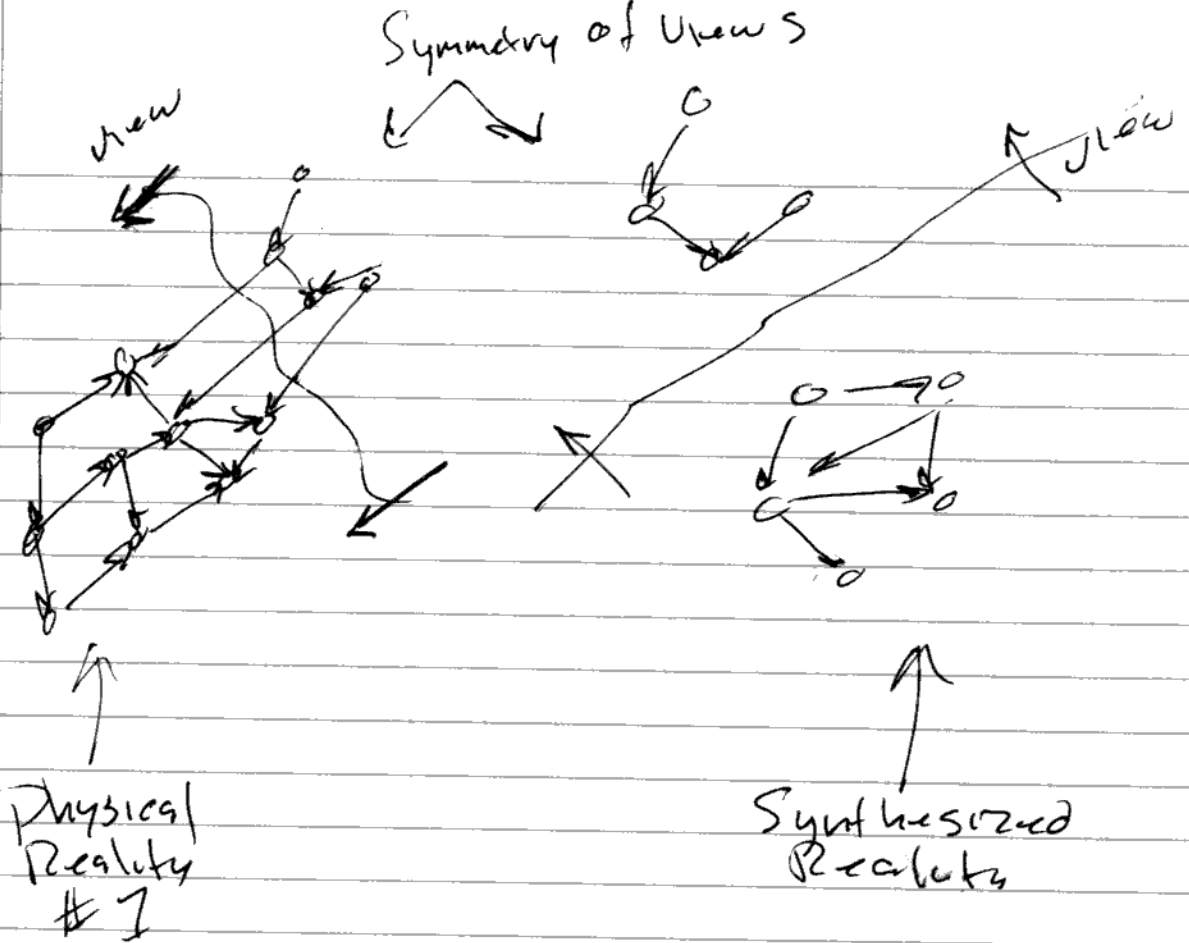 Symmetry of Views
view
view
Physical
Reality
# 1
Synthesized
Reality